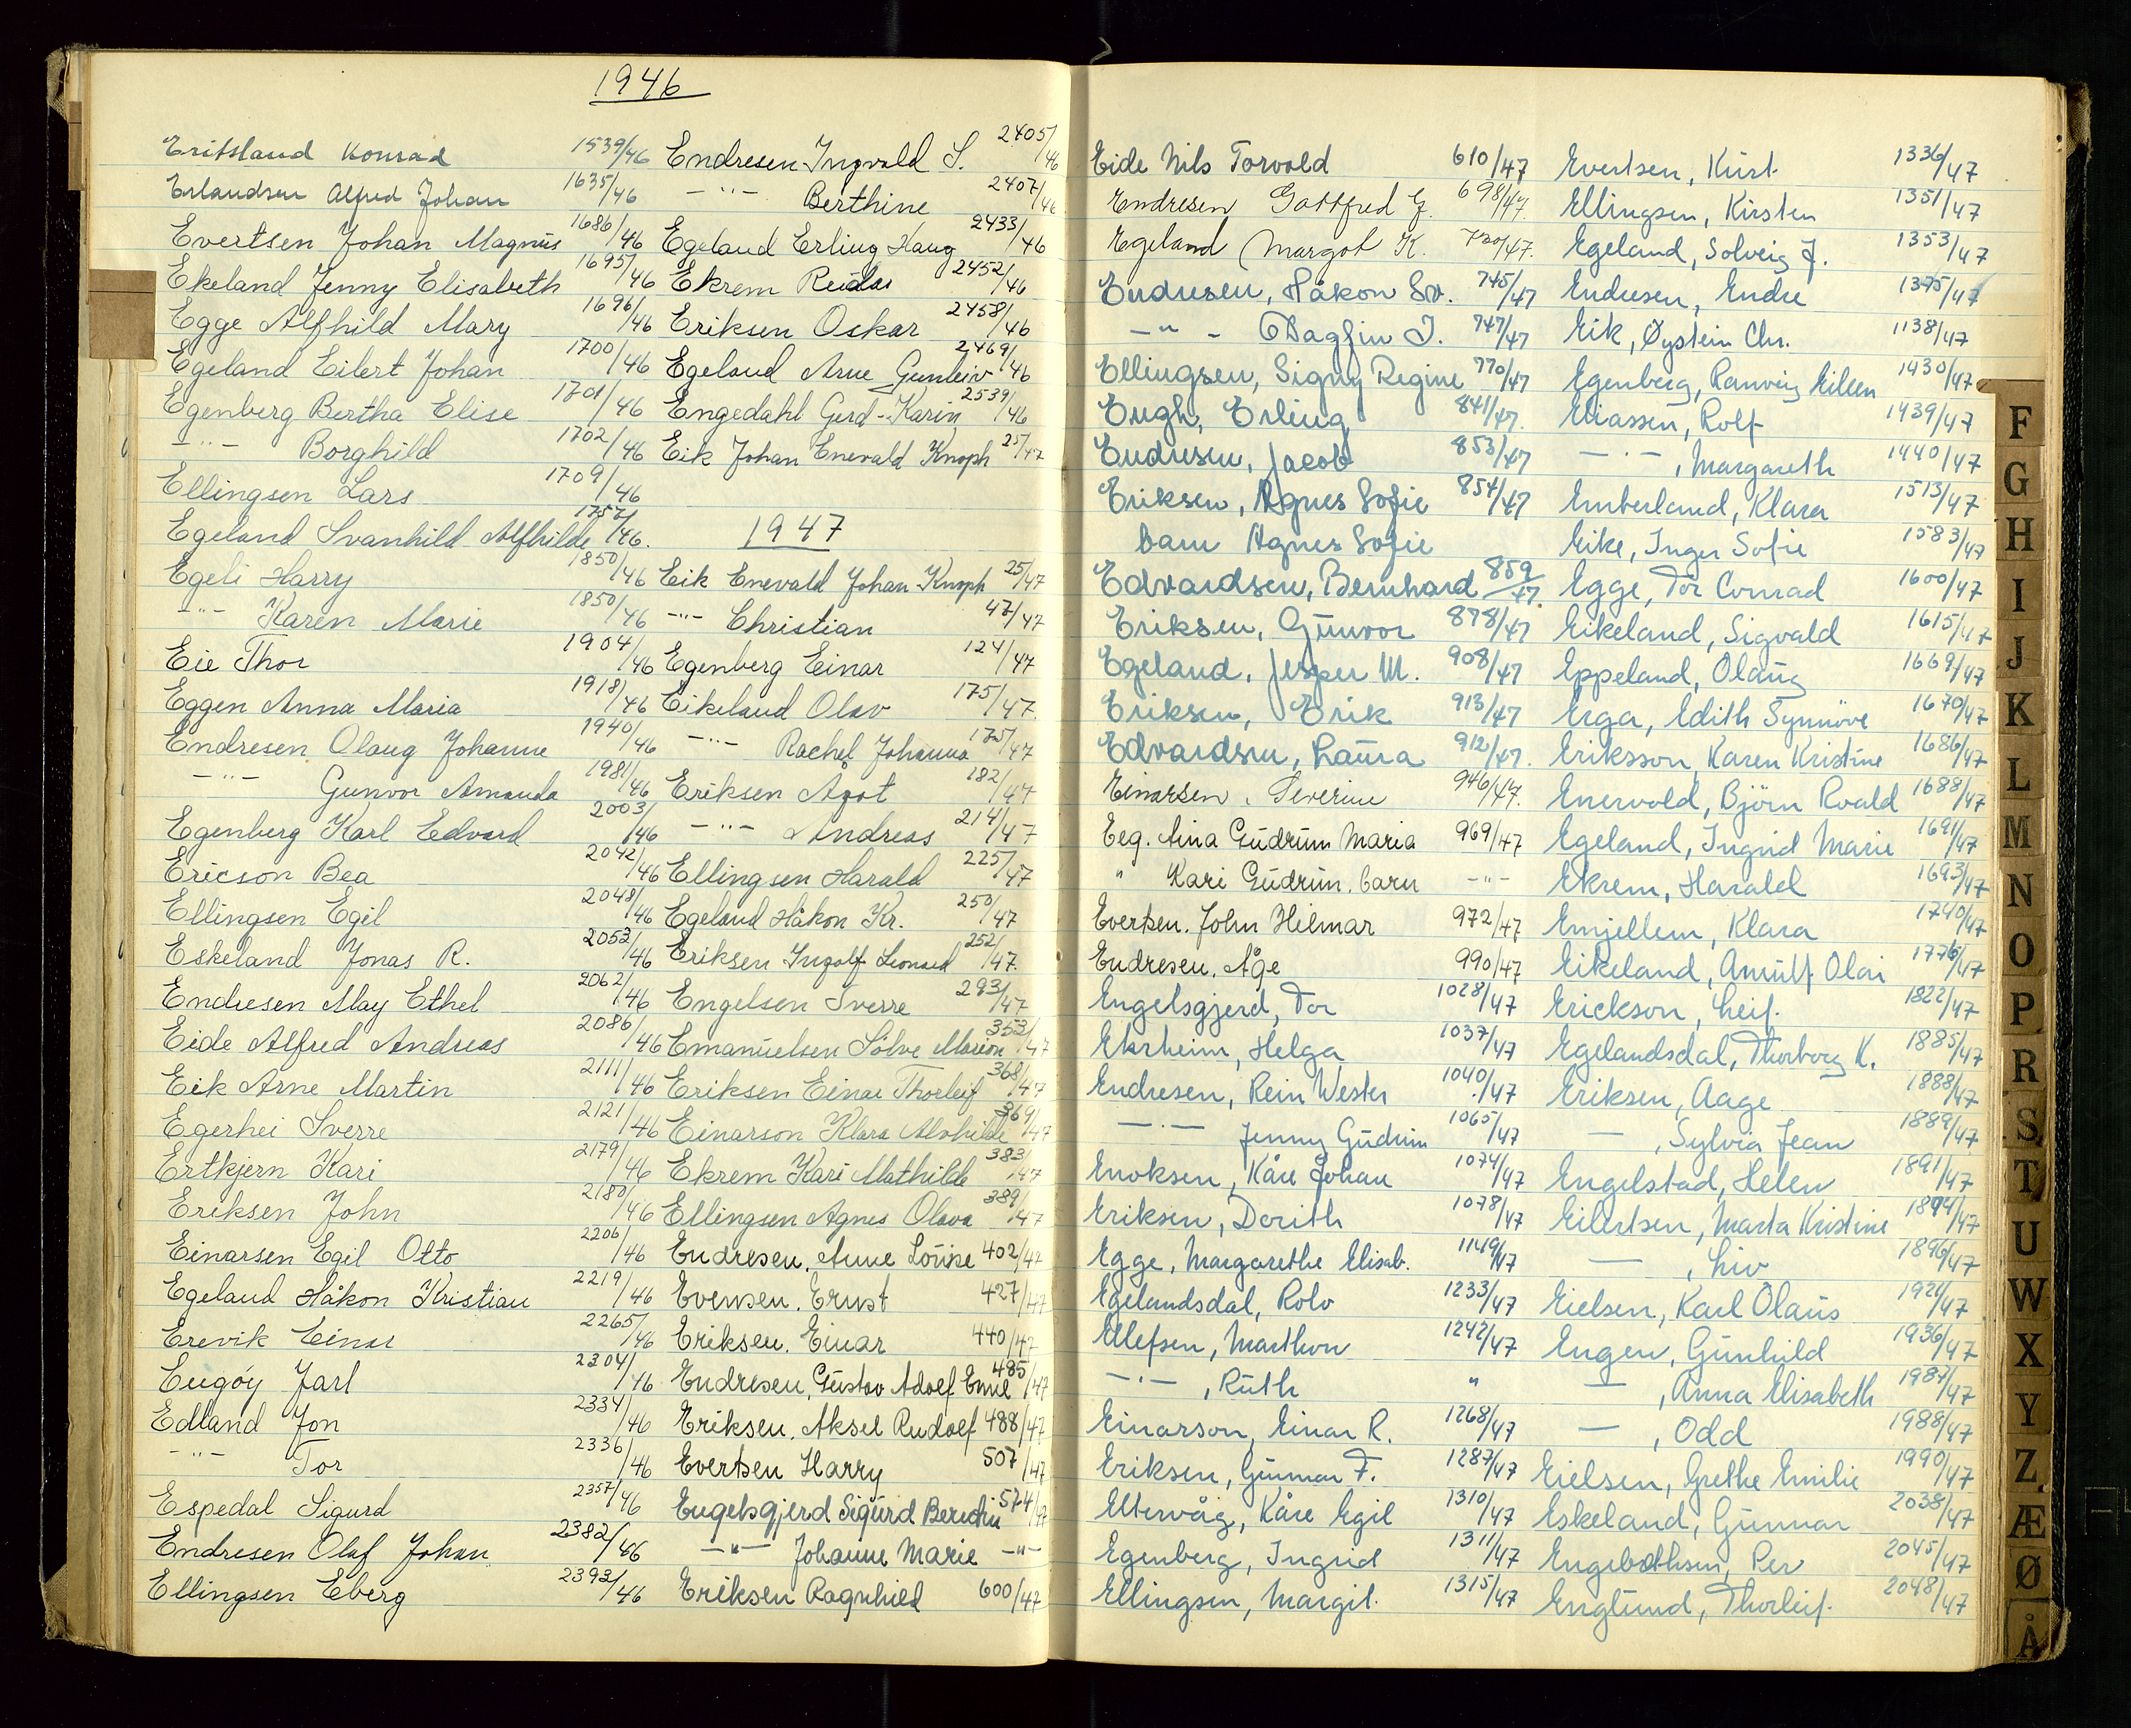 1946
Eritsland Konrad 1539/46
Erlandsen Alfred Johan 1635/46
Evertsen Johan Magnus 1686/46
Ekeland Jenny Elisabeth 1695/46
Egge Alfhild Mary 1696/46
Egeland Eilert Johan 1700/46
Egenberg Bertha Elise 1701/46
-"- Borghild 1702/46
Ellingsen Lars 1709/46
Egeland Svanhild Alfhilde 1757/46.
Egeli Harry 1850/46
-"- Karen Marie 1850/46
Eie Thor 1904/46
Eggen Anna Maria 1918/46
Endresen Olaug Johanne 1940/46
-"- Gunvor Amanda 1981/46
Egenberg Karl Edvard 2003/46
Ericson Bea 2042/46
Ellingsen Egil 2048/46
Eskeland Jonas R. 2053/46
Endresen May Ethel 2062/46
Eide Alfred Andreas 2086/46
Eik Arne Martin 2111/46
Egerhei Sverre 2121/46
Ertkjern Kari 2179/46
Eriksen John 2180/46
Einarsen Egil Otto 2206/46
Egeland Håkon Kristian 2219/46
Erevik Einar 2265/46
Engøy Jarl 2304/46
Edland Jon 2334/46
-"- Tor 2336/46
Espedal Sigurd 2357/46
Endresen Olaf Johan 2382/46
Ellingsen Eberg 2393/46
Endresen Ingvald S. 2405/46
-"- Berthine 2407/46
Egeland Erling Haug 2433/46
Ekrem Reidar 2452/46
Eriksen Oskar 2458/46
Egeland Arne Gunleiv 2469/46
Engedahl Gerd-Karin 2539/46
Eik Johan Enevald Knoph 25/47
1947
Eik Enevald Johan Knoph 25/47
-"- Christian 47/47
Egenberg Einar 124/47
Eikeland Olav 175/47
-"- Rachel Johanna 175/47
Eriksen Agot 182/47
-"- Andreas 214/47
Ellingsen Harald 225/47
Egeland Håkon Kr. 250/47
Eriksen Ingolf Leonard 252/47.
Engelsen Sverre 293/47
Emanuelsen Sölve Marion 353/47
Eriksen Einar Thorleif 368/47
Einarson Klara Alvhilde 369/47
Ekrem Kari Mathilde 383/47
Ellingsen Agnes Olava 389/47
Endresen, Anne Louise 402/47
Evensen. Ernst 427/47
Eriksen. Einar 440/47
Endresen, Gustav Adolf Emil 485/47
Eriksen. Aksel Rudolf 488/47
Evertsen Harry 507/47
Engelsgjerd Sigurd Berentin 574/47
-"- Johanne Marie -"-
Eriksen Ragnhild 600/47
Eide Nils Torvald 610/47
Endresen Gottfred G. 698/47.
Egeland Margot K. 720/47.
Endresen, Håkon Sv. 745/47
-"- Dagfin I. 747/47
Ellingsen, Signy Regine 770/47
Eugh, Erling 841/47.
Endresen, Jacob 853/47
Eriksen, Agnes Sofie 854/47
barn Agnes Sofie
Edvardsen, Bernhard 859/47.
Eriksen, Gunvor 878/47
Egeland, Jesper M. 908/47
Eriksen, Erik 913/47
Edvardsen, Laura 912/47.
Einarsen, Severine 946/47.
Eeg. Aina Gudrun Maria 969/47
" Kari Gudrun. barn -"-
Evertsen. John Hilmar 972/47
Endresen, Åge 990/47
Engelsgjerd, Tor 1028/47
Ekrheim, Helga 1037/47
Endresen, Rein Wester 1040/47
-"- Jenny Gudrun 1065/47
Enoksen, Kåre Johan 1074/47
Eriksen, Dorith 1078/47
Egge, Margarethe Elisab. 1149/47
Egelandsdal, Rolv 1233/47
Ellefsen, Marthon 1242/47
-"-, Ruth "
Einarson, Einar R. 1268/47
Eriksen, Gunnar F. 1287/47
Eltervåg, Kåre Egil 1310/47
Egenberg, Ingrid 1311/47
Ellingsen, Margit. 1315/47
Evertsen, Kurt. 1336/47
Ellingsen, Kirsten 1351/47
Egeland, Solveig J. 1353/47
Endresen, Endre 1375/47
Eik, Øystein Chr. 1138/47
Egenberg, Ranveig Eileen 1430/47
Eliassen, Rolf 1439/47
-"-, Margareth 1440/47
Emberland, Klara 1513/47
Eike, Inger Sofie 1583/47
Egge, Tor Conrad 1600/47
Eikeland, Sigvald 1615/47
Eppeland, Olaug 1669/47
Erga, Edith Synnöve 1670/47
Eriksson, Karen Kristine 1686/47
Enervold, Björn Roald 1688/47
Egeland, Ingrid Marie 1691/47
Ekrem, Harald 1693/47
Emjellem, Klara 1740/47
Eikeland, Arnulf Olai 1776/47
Erickson, Leif. 1822/47
Egelandsdal, Thorborg K. 1885/47
Eriksen, Aage 1888/47
—, Sylvia Jean 1889/47
Engelstad, Helen 1891/47
Eilertsen, Marta Kristine 1894/47
—, Liv 1896/47
Eielsen, Karl Olaus 1921/47
Engen, Gunhild 1936/47
—, Anna Elisabeth 1987/47
—, Odd 1988/47
Eielsen, Grethe Emilie 1990/47
Eskeland, Gunnar 2038/47
Engebrethsen, Per 2045/47
Englund, Thorleif. 2048/47
F
G
H
I
J
K
L
M
N
O
P
R
S
T
U
W
X
Y
Z
Æ
Ø
Å